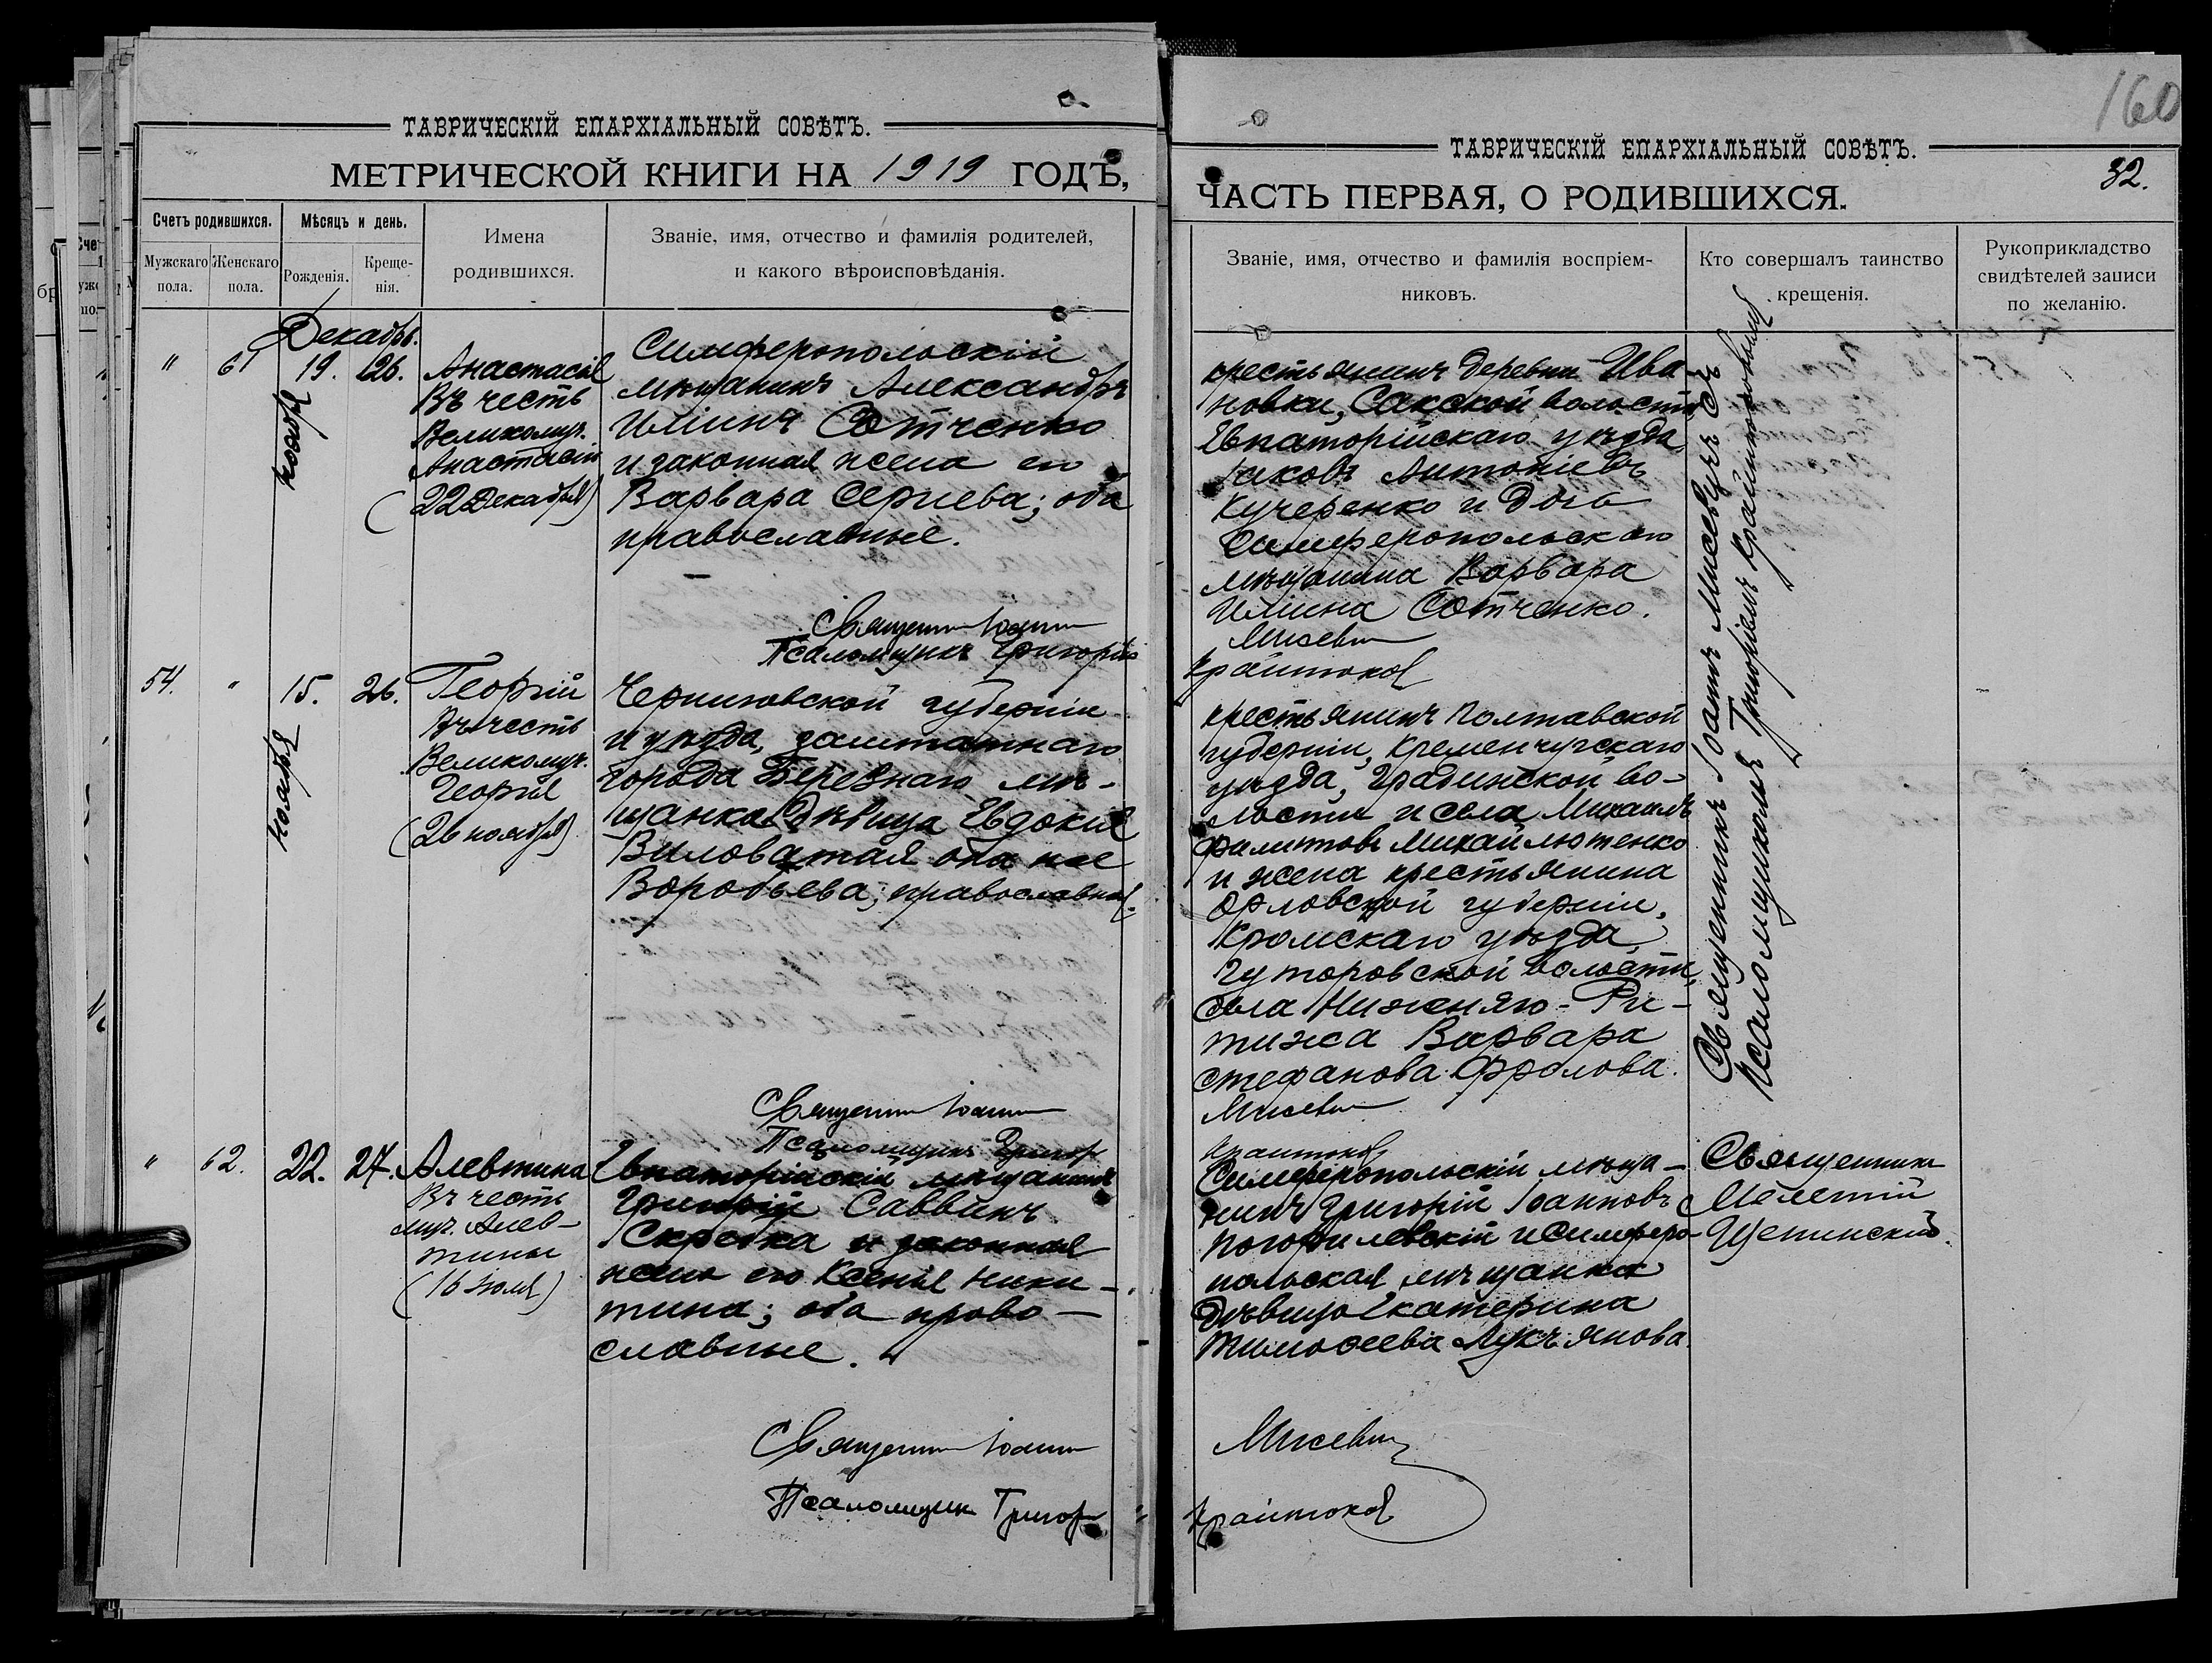 ТАВРИЧЕСКІЙ ЕПАРХІАЛЬНЫЙ СОВѢТЪ.
МЕТРИЧЕСКОЙ КНИГИ НА 1919 ГОДЪ,
Счетъ родившихся.
Мужскаго пола.
Женскаго пола.
Мѣсяцъ и день.
Рожденія.
Креще-
нія.
Имена
родившихся.
Званіе, имя, отчество и фамилія родителей,
и какого вѣроисповѣданія.
Декабр.
" 61 19. 26.
Ноября
Анастасія
Въ честь
Великомуч.
Анастасіи
(22 Декабря)
Симферопольскій
мѣщанинъ Александръ
Иліинъ Сотченко
и законная жена его
Варвара Сергиева; оба
православные.
Священник Іоанн
Псаломщикъ Григорій
54. " 15. 26.
Ноября
Георгій
Въ честь
Великомуч.
Георгія
(26 ноября)
Черниговской губерніи
и уѣзда, заштатнаго
города Березнаго мѣ-
щанка дѣвица Евдокія
Виловатая она же
Воробьева; православная.
Священник Іоанн
Псаломщикъ Григор
" 62. 22. 27.
Алевтина
Въ честь
муч. Алев-
тины
(16 Іюля)
Евпаторійскій мѣщанинъ
Григорій Саввинъ
Скребка и законная
жена его Ксенія Ники-
тина; оба право-
славные.
Священник Іоанн
Псаломщик Григор
160
ТАВРИЧЕСКІЙ ЕПАРХІАЛЬНЫЙ СОВѢТЪ.
32.
ЧАСТЬ ПЕРВАЯ, О РОДИВШИХСЯ.
Званіе, имя, отчество и фамилія воспріем-
никовъ.
Кто совершалъ таинство
крещенія.
Рукоприкладство
свидѣтелей записи
по желанію.
крестьянинъ деревни Ива-
новки, Сакской волости
Евпаторійскаго уѣзда,
Іаковъ Антоніевъ
Кучеренко и дочь
Симферопольскаго
мѣщанина Варвара
Иліина Сотченко.
Мисевич
Крайтоков
крестьянинъ Полтавской
губерніи, Кременчугскаго
уѣзда, Градинской во-
лости и села Михаилъ
Филиповъ Михайлютенко
и жена крестьянина
Орловской губерніи,
Кромскаго уѣзда,
Гуторовской волости,
села Нижняго-Ри-
тижа Варвара
Стефанова Фролова.
Мисевич
Крайтоков
Священникъ Іоаннъ Мисевичъ съ
псаломщикомъ Григоріемъ Крайтоковымъ
Симферопольскій мѣща-
нинъ Григорій Іоанновъ
Погорилевскій и симферо-
польская мѣщанка
дѣвица Екатерина
Тимоѳеева Лукъянова.
Священник
Мелетій
Щепинский.
Мисевич
Крайтоков